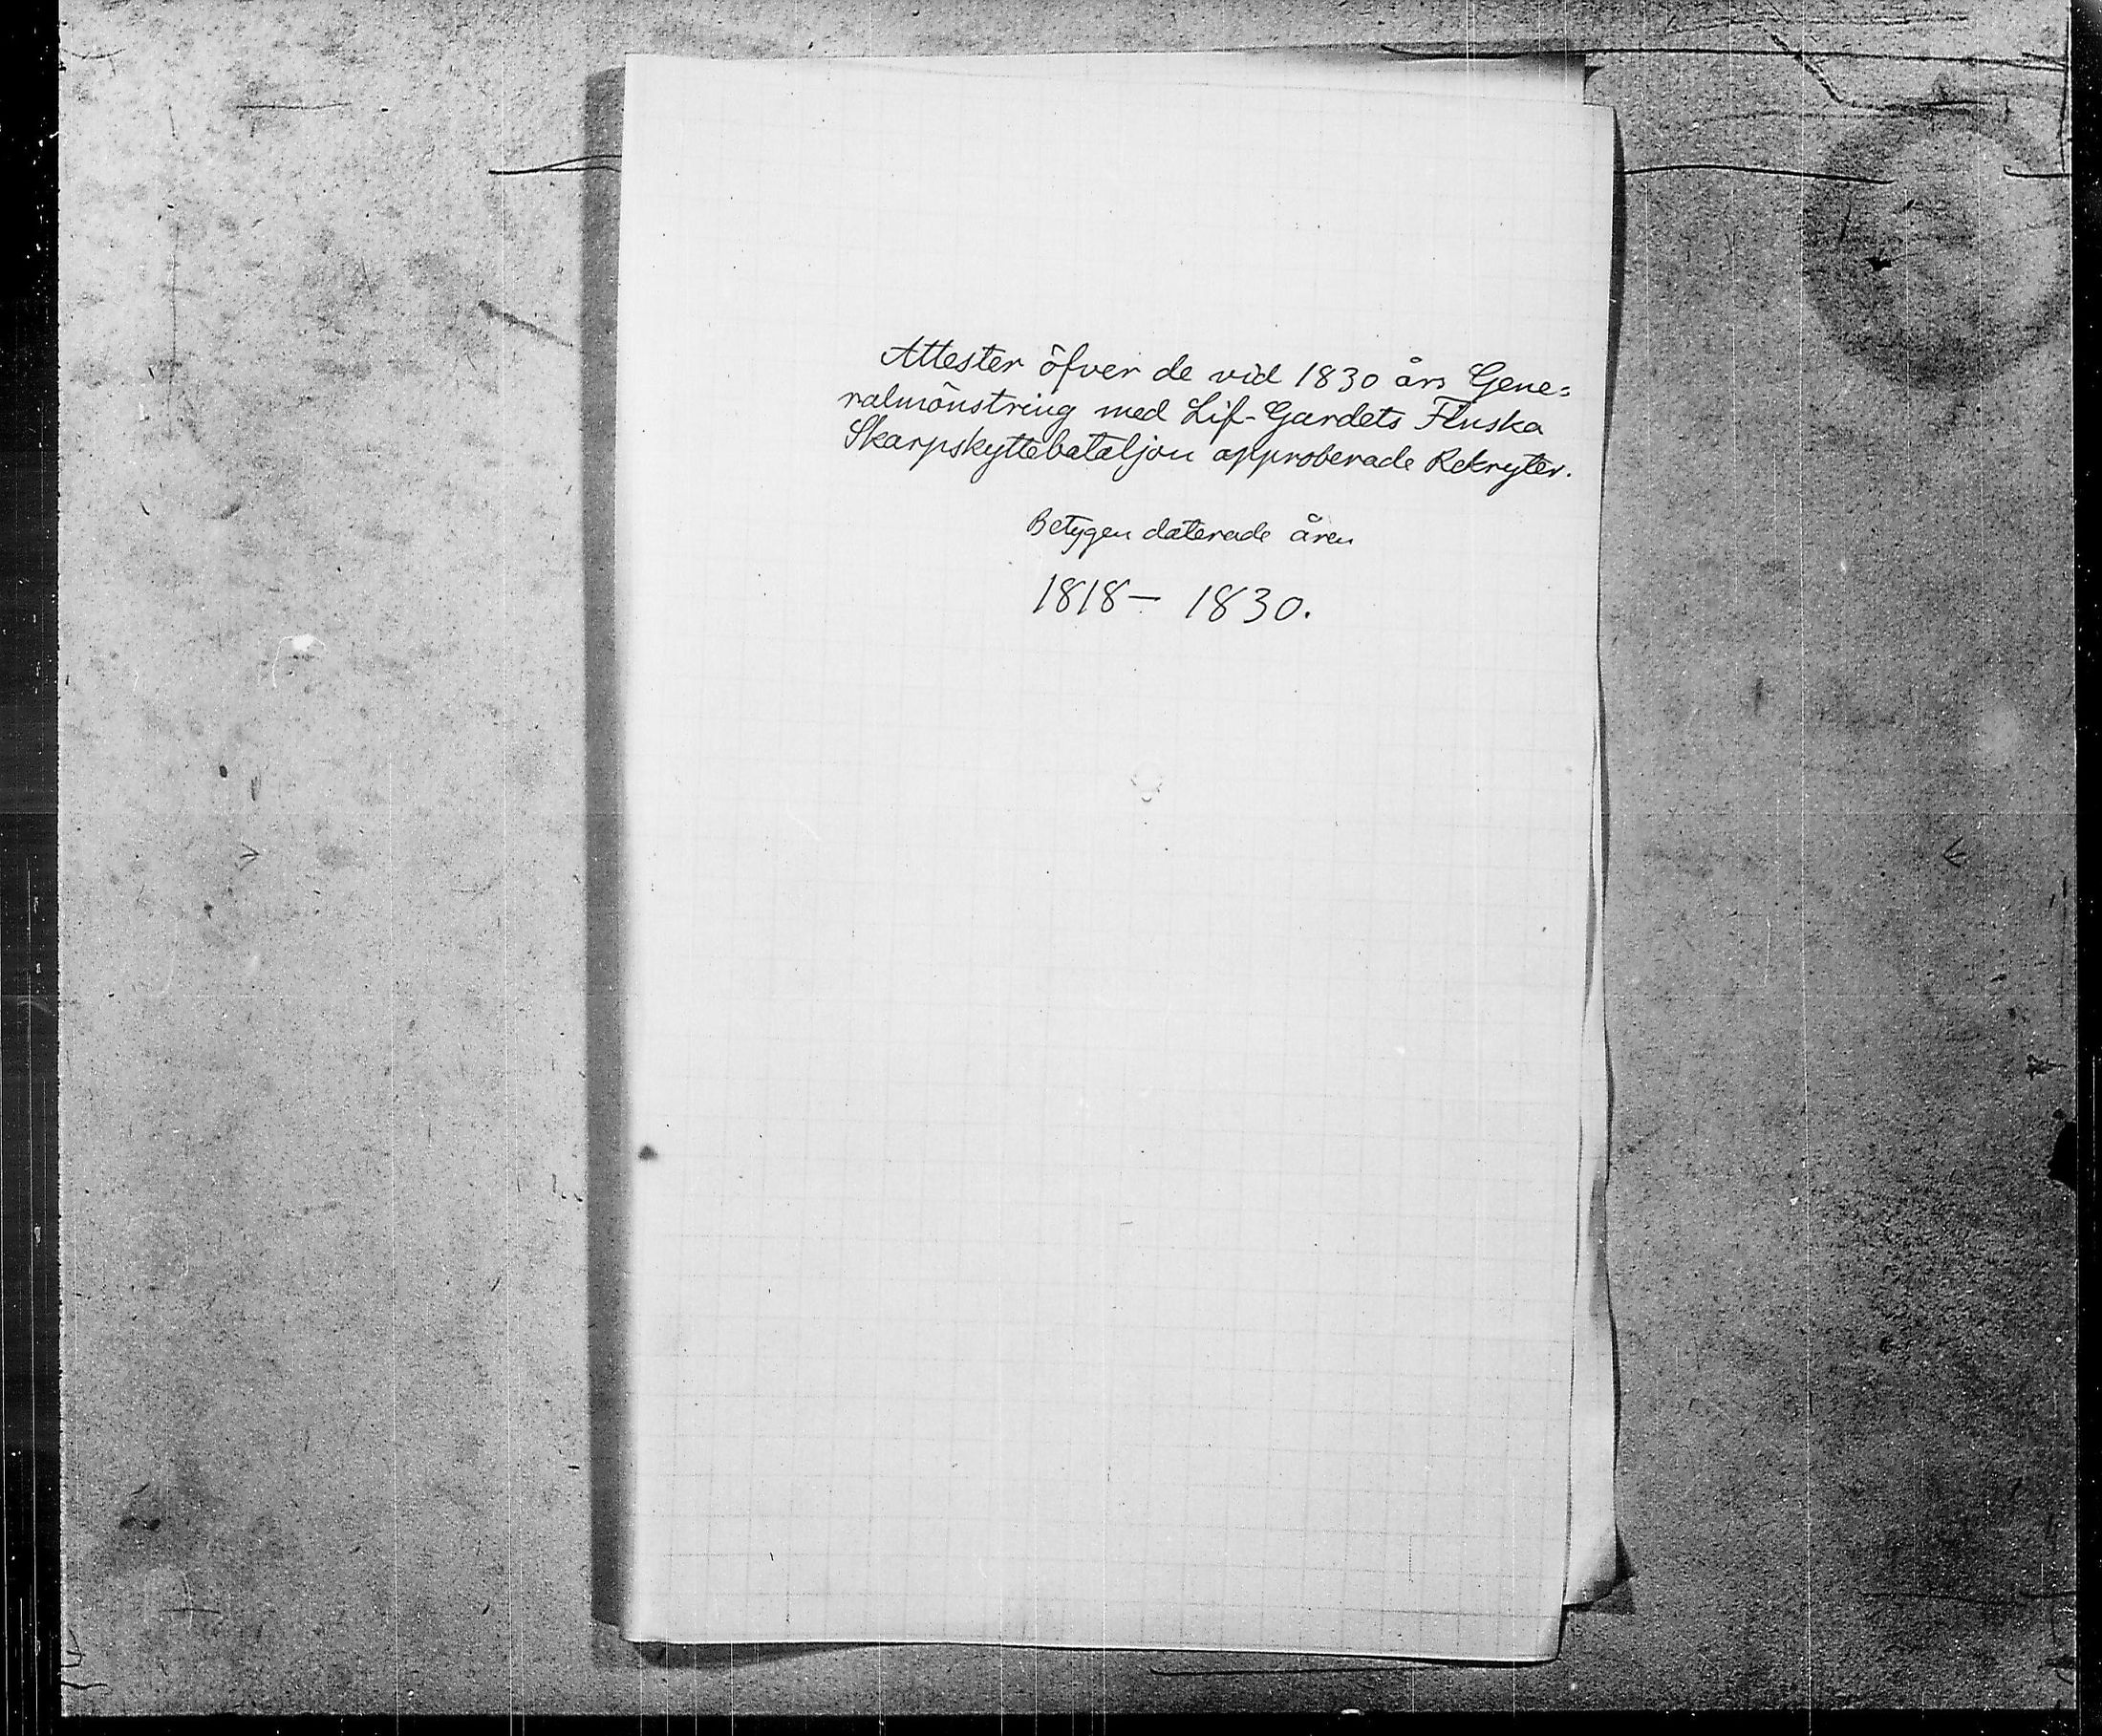 Attester öfver de vid 1830 års Gene=
ralmönstring med Lif-Gardets Finska
Skarpskyttebataljon approberade Rekryter.
Betygen daterade åren
1818— 1830.